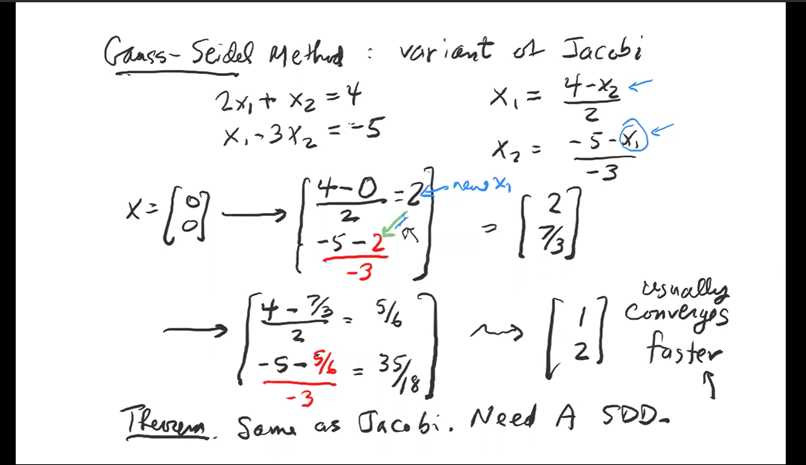 Gauss-Seidel Method : variant of Jacobi
2x₁ + x₂ = 4
x₁ - 3x₂ = -5
x₁ = (4 - x₂)/2
x₂ = (-5 - x₁)/-3
x = [0; 0] → [(4 - 0)/2 = 2; (-5 - 2)/-3] = [2; 7/3]
new x₁
→ [(4 - 7/3)/2 = 5/6; (-5 - 5/6)/-3 = 35/18] ⇝ [1; 2]
usually
converges
faster
Theorem. Same as Jacobi. Need A SDD.